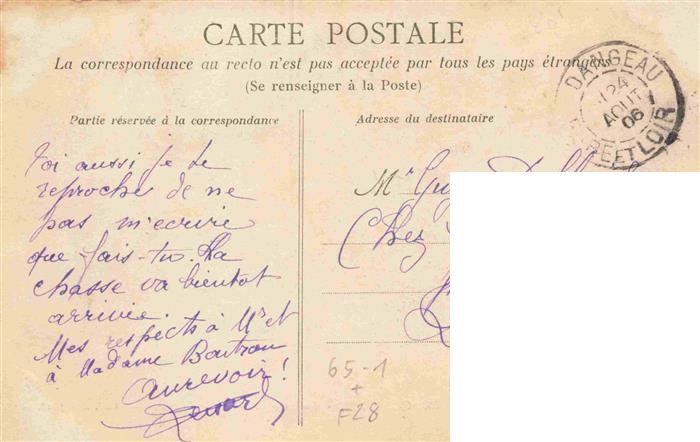 CARTE POSTALE
La correspondance au recto n'est pas acceptée par tous les pays étrangers
(Se renseigner à la Poste)
Partie réservée à la correspondance
Adresse du destinataire
DANGEAU
24
AOUT
06
EURE ET LOIR
Toi aussi je te
reproche de ne
pas m'ecrire
que fais-tu. La
chasse va bientot
arrivée.
Mes respects à Mr et
à Madame Boutrou
Aurevoir!
Mr Guy
Chez
65-1
+
F28